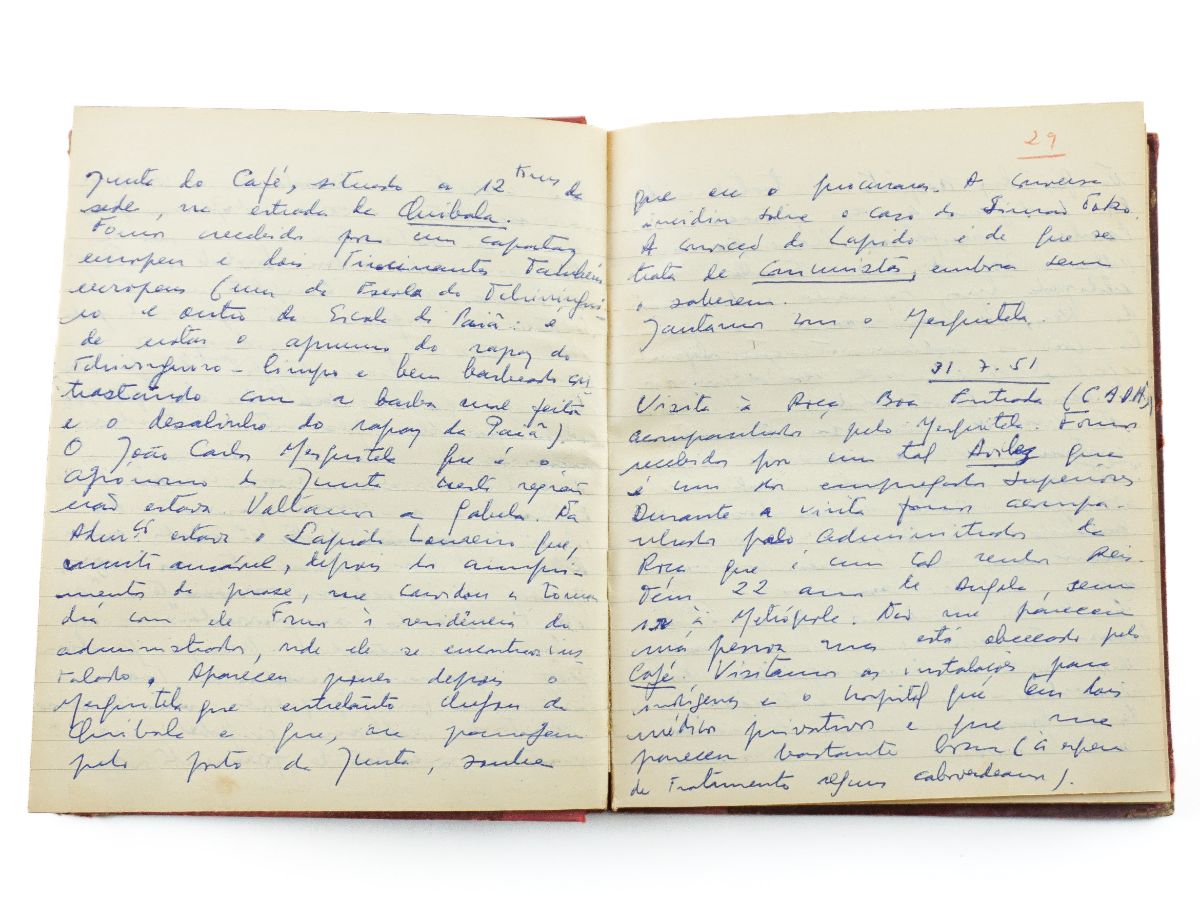 Junta do Café, situado a 12 Kms da
sede, na estrada da Quibala.
Fomos recebidos por um capataz
europeu e dois tirocinantes também
europeus (um da Escola do Tchivingui-
ro e outro da Escola de Paiã: é
de notar o aprumo do rapaz do
Tchivinguiro – limpo e bem barbeado con-
trastando com a barba mal feita
e o desalinho do rapaz da Paiã)
O João Carlos Mesquitela que é o
agrónomo da Junta nesta região
não estava. Voltamos a Gabela. Na
Admi estava o Lapido Loureiro que,
muito amável, depois dos cumpri-
mentos da praxe, me convidou a tomar
chá com ele. Fomos à residência do
administrador, onde ele se encontrava ins-
talado. Apareceu pouco depois o
Mesquitela que entretanto chegou da
Quibala e que, na passagem
pelo posto da Junta, soube
29
que eu o procurara. A conversa
incidiu sobre o caso do Simão Toko.
A convicção do Lapido é de que se
trata de Comunistas, embora sem
o saberem.
Jantamos com o Mesquitela.
31.7.51
Visita à Roça Boa Entrada (CADA)
acompanhados pelo Mesquitela. Fomos
recebidos por um tal Avilez que
é um dos empregados superiores
Durante a visita fomos acompa-
nhados pelo administrador da
Roça que é um tal senhor Reis.
Tem 22 anos de Angola, sem
ir à Metrópole. Não me pareceu
má pessoa mas está obcecado pelo
Café. Visitamos as instalações para
indígenas e o hospital que tem dois
médicos privativos e que me
pareceu bastante bom (à espera
de tratamento alguns caboverdeanos).